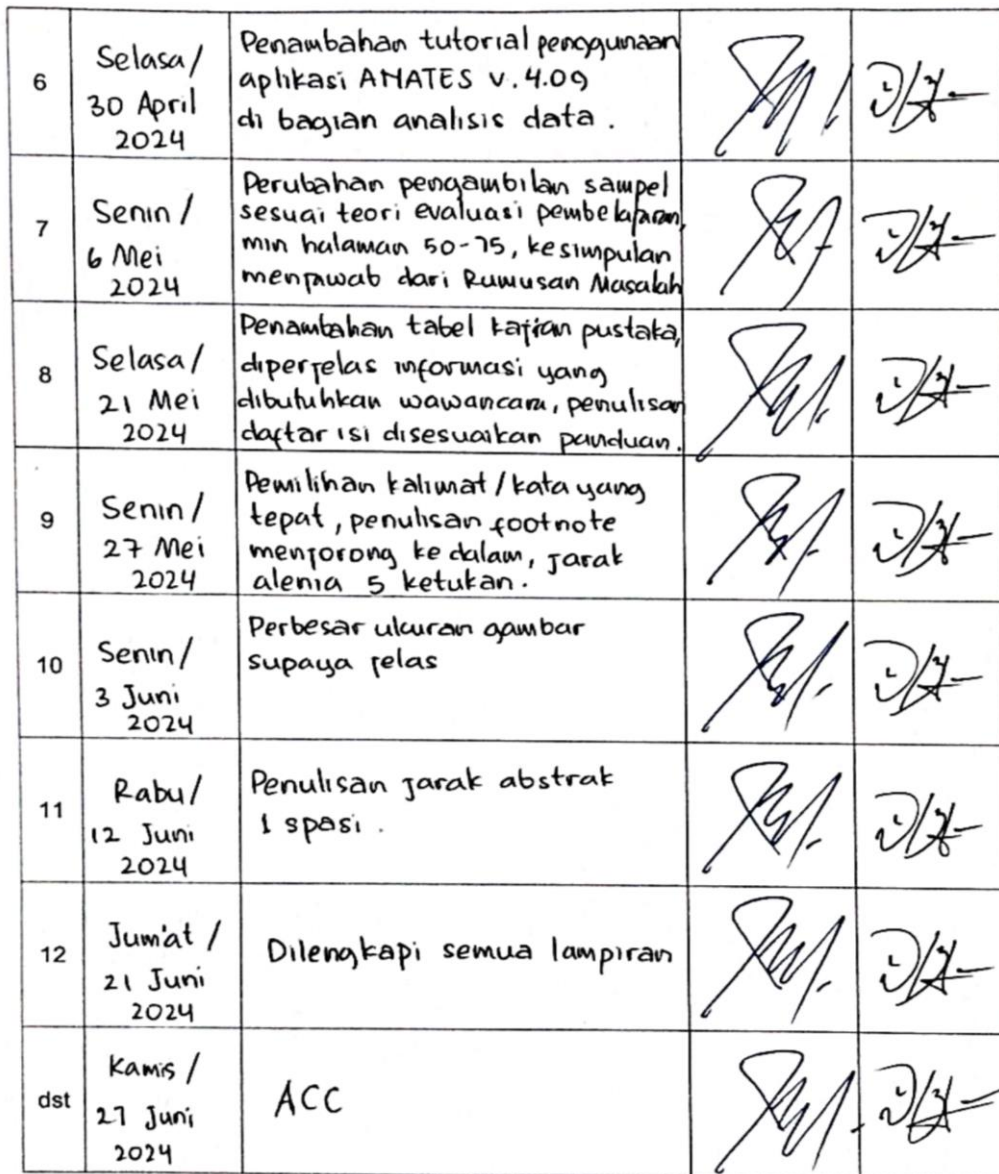 6
Selasa/
30 April
2024
Penambahan tutorial penggunaan
aplikasi ANATES V. 4.09
di bagian analisis data.
7
Senin/
6 Mei
2024
Perubahan pengambilan sampel
sesuai teori evaluasi pembelajaran,
min halaman 50-75, kesimpulan
menjawab dari Rumusan Masalah
8
Selasa/
21 Mei
2024
Penambahan tabel kajian pustaka,
diperjelas informasi yang
dibutuhkan wawancara, penulisan
daftar isi disesuaikan panduan.
9
Senin/
27 Mei
2024
Pemilihan kalimat/kata yang
tepat, penulisan footnote
menjorong ke dalam, jarak
alenia 5 ketukan.
10
Senin/
3 Juni
2024
Perbesar ukuran gambar
supaya jelas
11
Rabu/
12 Juni
2024
Penulisan jarak abstrak
1 spasi.
12
Jum'at/
21 Juni
2024
Dilengkapi semua lampiran
dst
Kamis/
27 Juni
2024
ACC